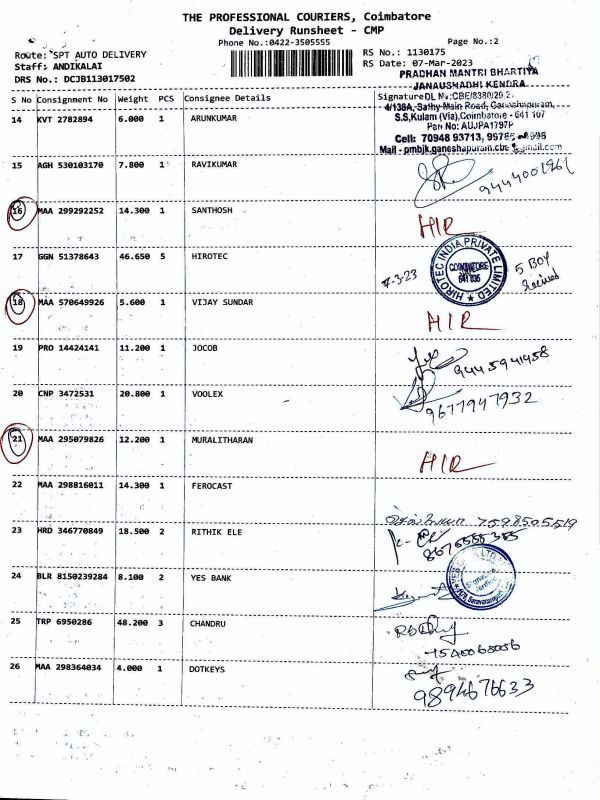 THE PROFESSIONAL COURIERS, Coimbatore
Delivery Runsheet - CMP
Phone No.:0422-3505555 Page No.:2
Route: SPT AUTO DELIVERY RS No.: 1130175
Staff: ANDIKALAI RS Date: 07-Mar-2023
DRS No.: DCJB113017502
PRADHAN MANTRI BHARTIYA
JANAUSHADHI KENDRA
S No Consignment No Weight PCS Consignee Details Signature
4/138A, Sathy Main Road, Ganeshapuram,
S.S,Kulam (Via),Coimbatore - 641 107
Pan No: AUJPA1797P
Cell: 70948 93713,
Mail - pmbjk.ganeshapuram.cbe
14 KVT 2782894 6.000 1 ARUNKUMAR
15 AGH 530103170 7.800 1 RAVIKUMAR
16 MAA 299292252 14.300 1 SANTHOSH HIR
17 GGN 51378643 46.650 5 HIROTEC
HIROTEC INDIA PRIVATE LIMITED
COIMBATORE
641 035
7-3-23
5 BOX
Received
18 MAA 570649926 5.600 1 VIJAY SUNDAR HIR
19 PRO 14424141 11.200 1 JOCOB 9445941458
20 CNP 3472531 20.800 1 VOOLEX 9677947932
21 MAA 295079826 12.200 1 MURALITHARAN HIR
22 MAA 298816011 14.300 1 FEROCAST
23 HRD 346770849 18.500 2 RITHIK ELE
24 BLR 8150239284 8.100 2 YES BANK
25 TRP 6950286 48.200 3 CHANDRU
26 MAA 298364034 4.000 1 DOTKEYS
9894676633